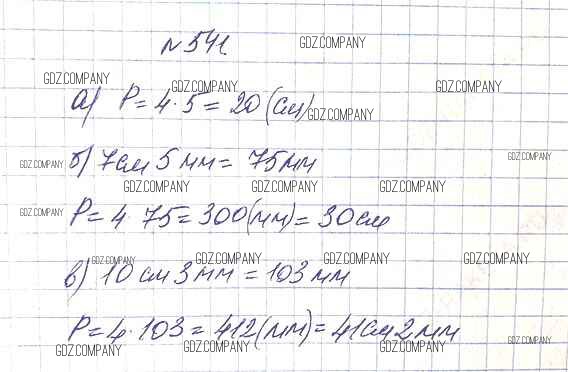 № 541
GDZ.COMPANY
GDZ.COMPANY GDZ.COMPANY GDZ.COMPANY
а) P = 4 · 5 = 20 (см)
GDZ.COMPANY
б) 7см 5 мм = 75 мм
GDZ.COMPANY GDZ.COMPANY
GDZ.COMPANY GDZ.COMPANY GDZ.COMPANY
P = 4 · 75 = 300 (мм) = 30 см
GDZ.COMPANY
GDZ.COMPANY GDZ.COMPANY GDZ.COMPANY GDZ.COMPANY
в) 10 см 3 мм = 103 мм
P = 4 · 103 = 412 (мм) = 41 см 2 мм
GDZ.COMPANY GDZ.COMPANY GDZ.COMPANY GDZ.COMPANY